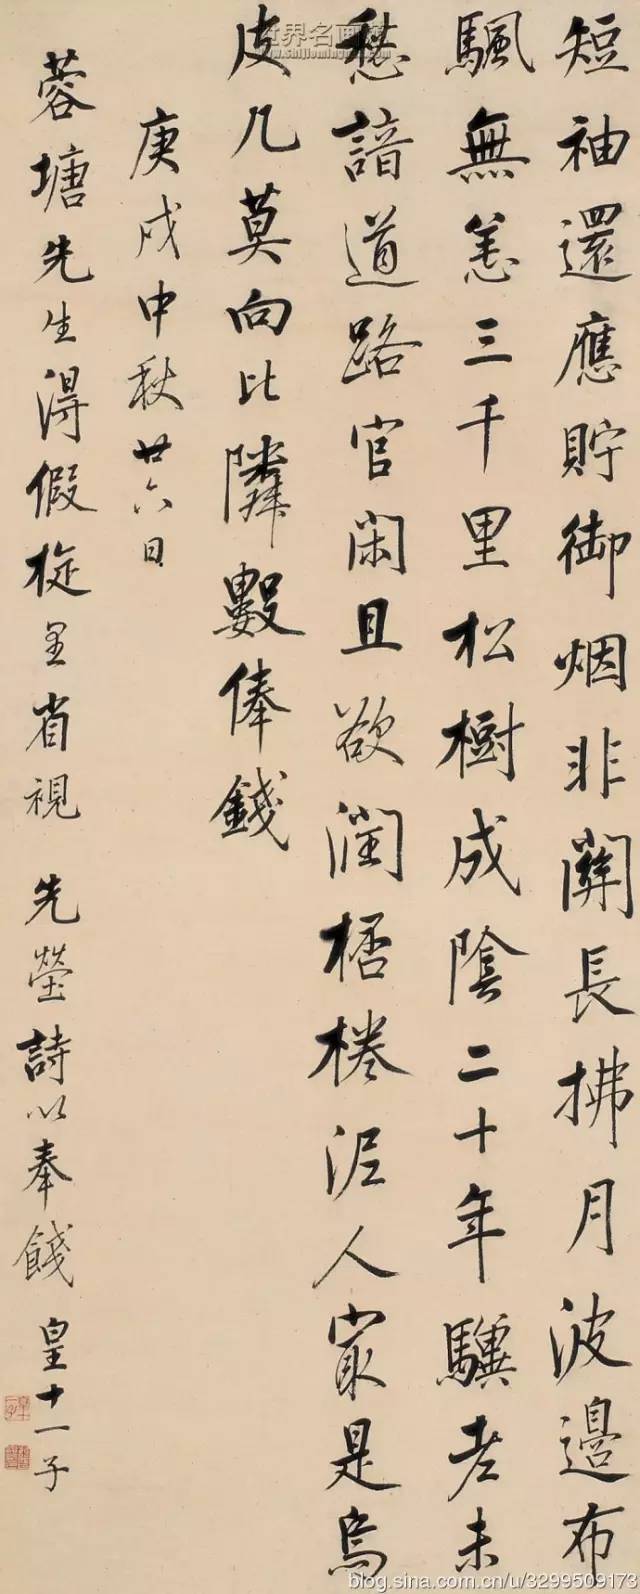 短袖還應貯御烟非關長拂月波邊布
颿無恙三千里松樹成陰二十年驥老未
愁諳道路官閑且欲潤桮棬泥人冣是烏
皮几莫向比隣數俸錢
庚戌中秋廿六日
蓉塘先生得假旋里省視 先塋詩以奉餞 皇十一子
世界名画
blog.sina.com.cn/u/3299509173